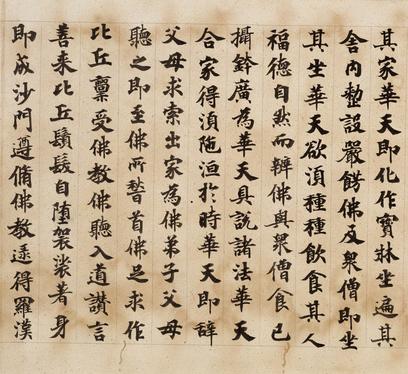 其家華天即化作寶牀坐遍其
舍內整設嚴餝佛及衆僧即坐
其坐華天欲湏種種飲食其人
福德自然而辦佛與衆僧食已
攝鉢廣為華天具說諸法華天
合家得湏陁洹於時華天即辞
父母求索出家為佛弟子父母
聽之即至佛所䭫首佛足求作
比丘稟受佛教佛聽入道讃言
善来比丘鬚髮自墮袈裟著身
即成沙門遵脩佛教逮得羅漢